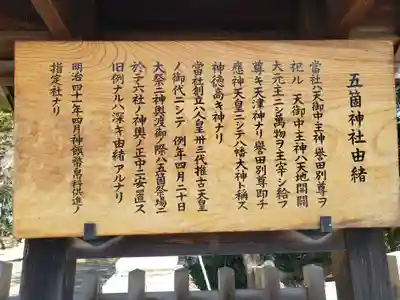 五箇神社由緒
當社ハ天御中主神誉田別尊ヲ
祀ル 天御中主神ハ天地開闢
大元主ニシ萬物ヲ主宰シ給フ
尊キ天津神ナリ誉田別尊即チ
應神天皇ニシテ八幡大神ト称ス
神徳高キ神ナリ
當社創立ハ人皇卅三代推古天皇
ノ御代ニシテ 例年四月二十日
大祭ニ神輿渡御ノ際ハ五箇祭場ニ
於テ六社ノ神輿ノ正中ニ安置ス
旧例ナルハ深キ由緒アルナリ
明治四十一年四月神饌幣帛料供進ノ
指定社ナリ